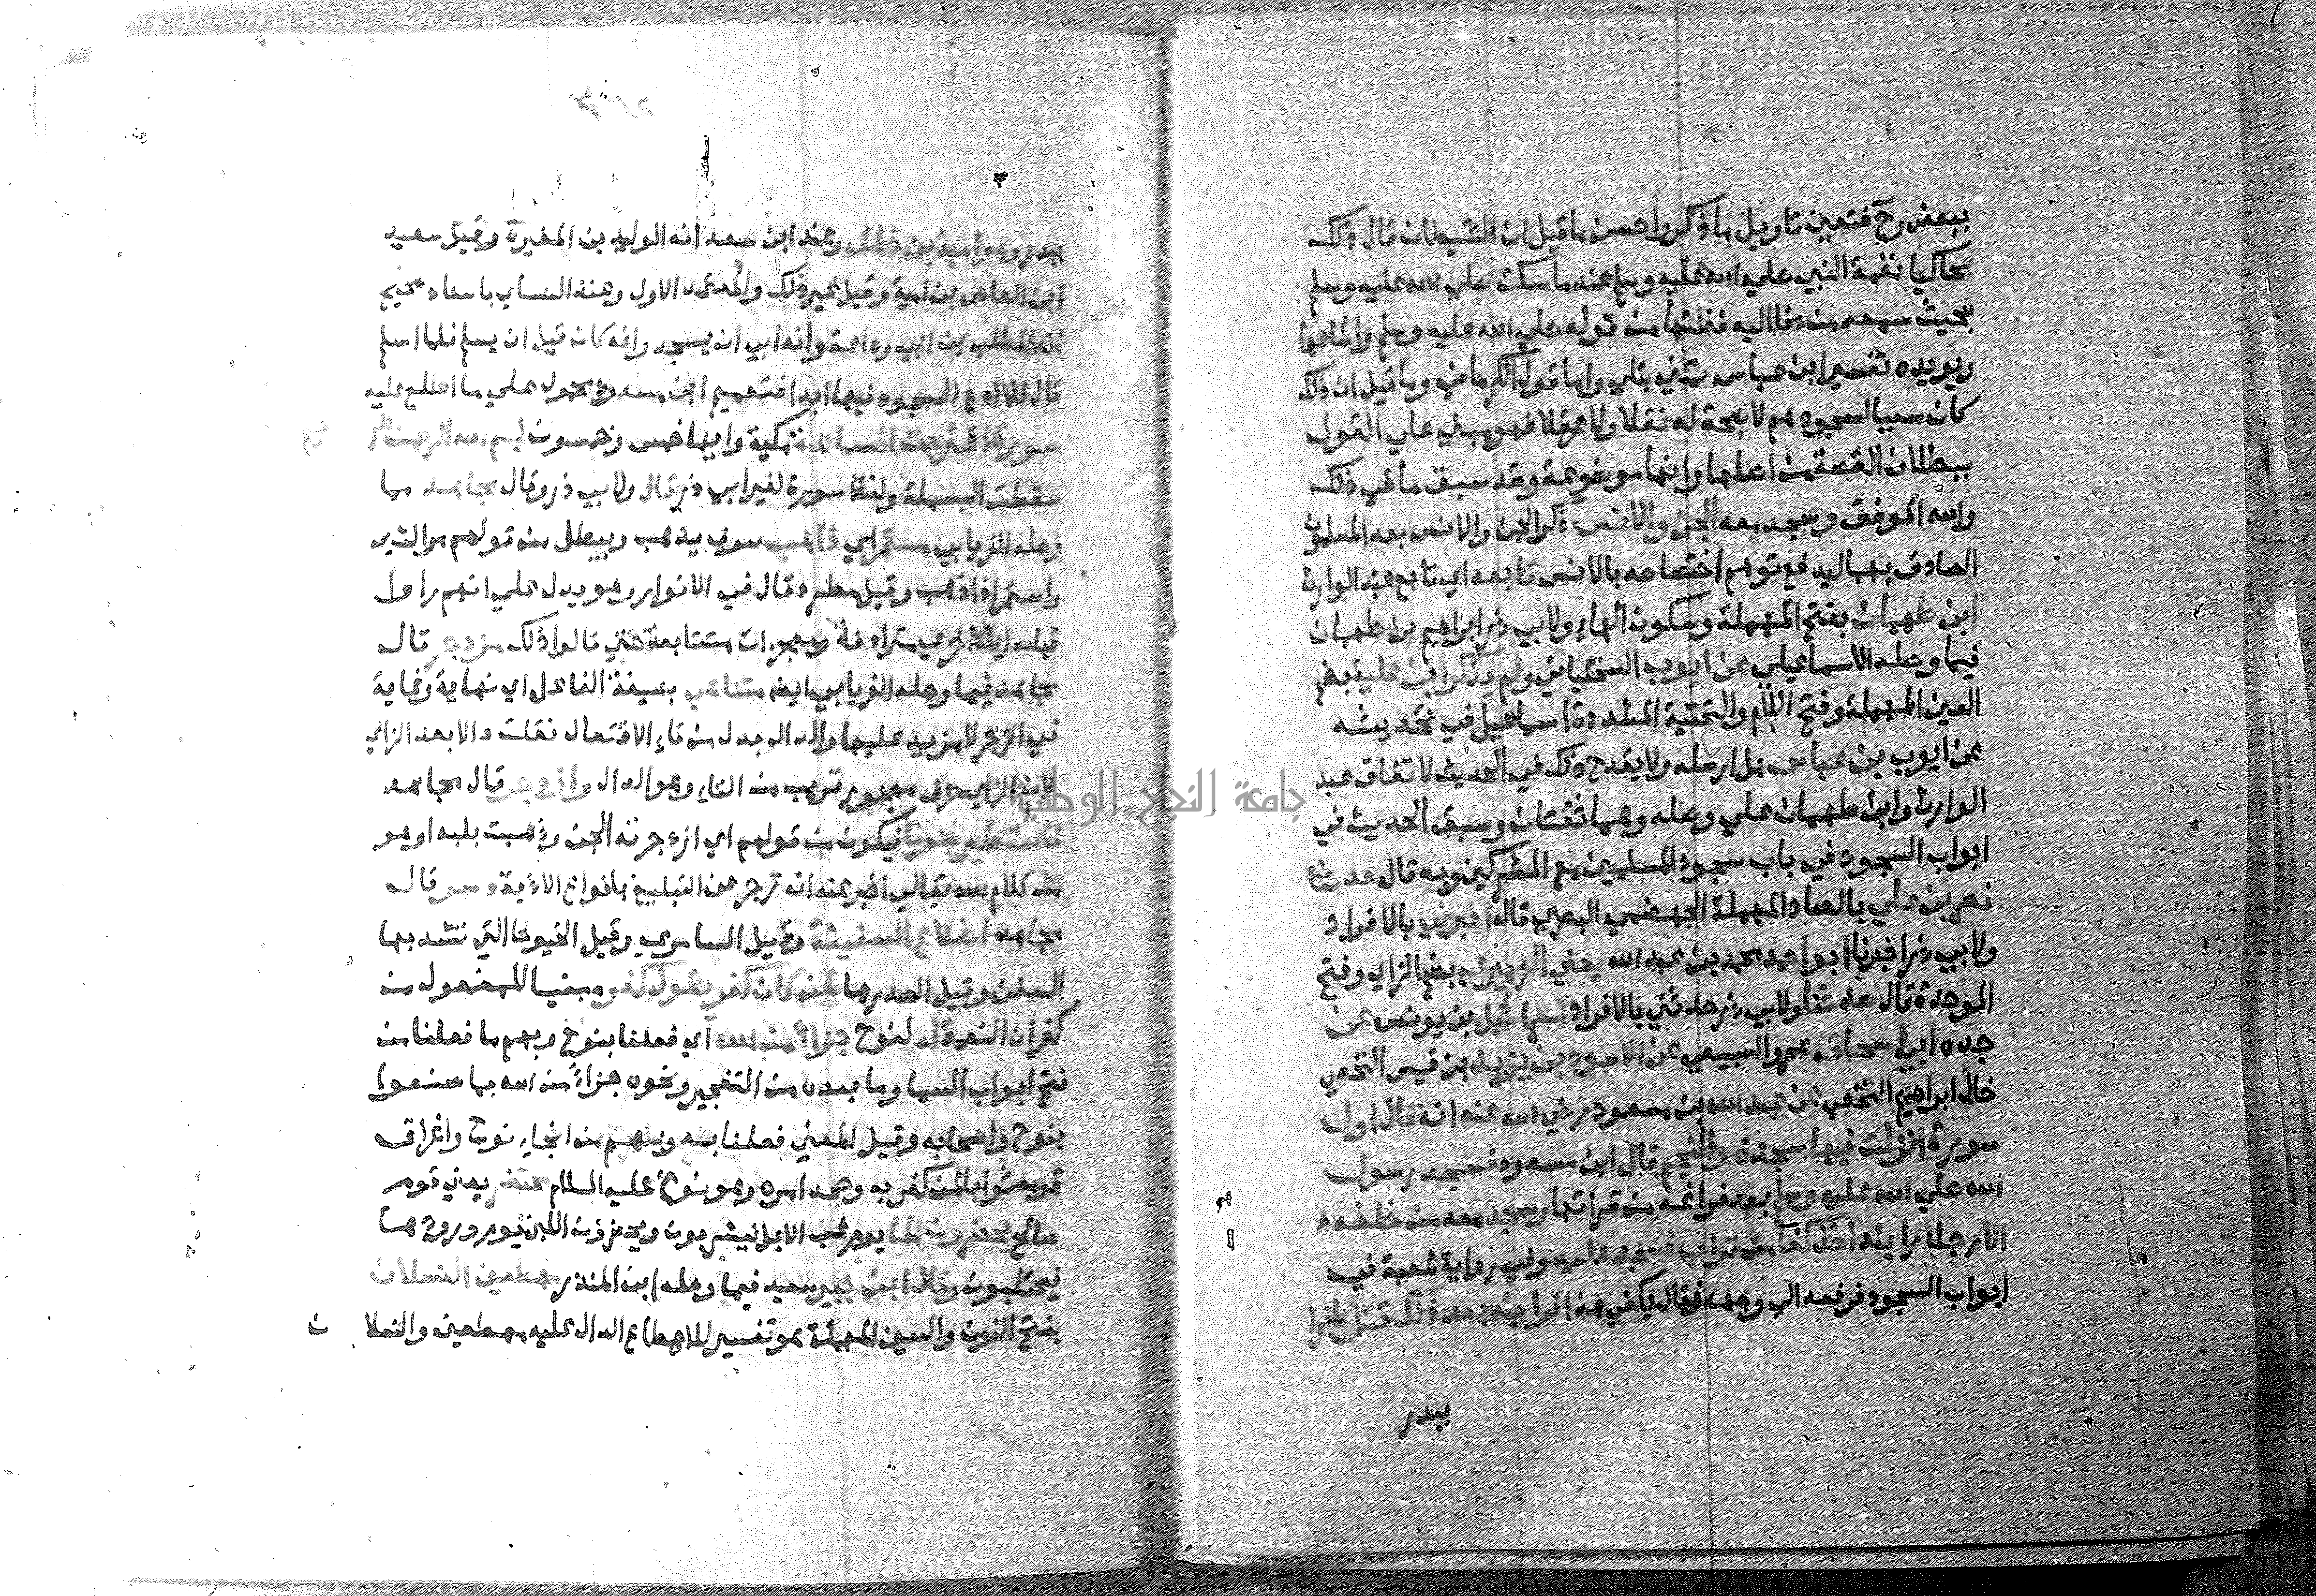 ببعض وح فتعين تاويل ما ذكر واحسن ما قيل ان الشيطان قال ذلك
محاكيا نغمة النبي صلي الله عليه وسلم عندما سكت صلي الله عليه وسلم
بحيث سمعه من دنا اليه فظنها من قوله صلي الله عليه وسلم واشاعها
ويويده تفسير ابن عباس تمني بتلي واما قول الكرماني وما قيل ان ذلك
كان سببا لسجودهم لا صحة له نقلا ولا عقلا فهو مبني علي القول
ببطلان القصة من اصلها وانها موضوعة وقد سبق ما في ذلك
والله الموفق وسجد معه الجن والانس ذكر الجن والانس بعد المسلمون
الصادق بهما ليدفع توهم اختصاصه بالانس تابعه اي تابع عبد الوارث
ابن طهمان بفتح المهملة وسكون الهاء ولابي ذر ابراهيم بن طهمان
فيما وصله الاسماعيلي عن ايوب السختياني ولم يذكر ابن علية بضم
العين المهملة وفتح اللام والتحتية المشددة اسماعيل في تحديثه
عن ايوب بن عباس بل ارسله ولا يقدح ذلك في الحديث لاتفاق عبد
الوارث وابن طهمان علي وصله وهما ثقتان وسبق الحديث في
ابواب السجود في باب سجود المسلمين مع المشركين وبه قال حدثنا
نصر بن علي بالصاد المهملة الجهضمي البصري قال اخبرني بالافراد
ولابي ذر اخبرنا ابو احمد محمد بن عبد الله يعني الزبيري بضم الزاي وفتح
الموحدة قال حدثنا ولابي ذر حدثني بالافراد اسرائيل بن يونس عن
جده ابي اسحاق عمرو السبيعي عن الاسود بن يزيد بن قيس النخعي
خال ابراهيم النخعي عن عبد الله بن مسعود رضي الله عنه انه قال اول
سورة انزلت فيها سجدة والنجم قال ابن مسعود فسجد رسول
الله صلي الله عليه وسلم بعد فراغه من قراتها وسجد معه من خلفه
الا رجلا رايته اخذ كفا من تراب فسجد عليه وفي رواية شعبة في
ابواب السجود فرفعه الي وجهه فقال يكفي هذا فرايته بعد ذلك قتل كافرا
ببدر
ببدر وهو امية بن خلف وعند ابن سعد انه الوليد بن المغيرة وقيل سعيد
ابن العاص بن امية وقيل غير ذلك والمعتمد الاول وعند النساي باسناد صحيح
انه المطلب بن ابي وداعة وانه ابي ان يسجد وانه كان قبل ان يسلم فلما اسلم
قال فلا ادع السجود فيها ابدا فتعميم ابن مسعود محمول علي ما اطلع عليه
سورة اقتربت الساعة مكية وايها خمس وخمسون بسم الله الرحمن
سقطت البسملة ولفظ سورة لغير ابي ذر قال ولابي ذر وقال مجاهد مما
وصله الفريابي مستمر اي ذاهب سوف يذهب ويبطل من قولهم مر الشي
واستمر اذا ذهب وقيل مطرد قال في الانوار وهو يدل علي انهم راوا
قبله ايات اخري مترادفة ومعجزات متتابعة حتي قالوا ذلك مزدجر قال
مجاهد فيما وصله الفريابي ايضا متناهي بصيغة الفاعل اي نهاية وغاية
في الزجر لا مزيد عليها والدال بدل من تاء الافتعال نقلت دالا بعد الزاي
لان الزاي حرف مجهور قريب من التاء وهو الدال وازدجر قال مجاهد
فاستطير جنونا فيكون من قولهم اي ازدجرته الجن وذهبت بلبه او هو
من كلام الله تعالي اخبر عنه انه زجر عن التبليغ بانواع الاذية ودسر قال
مجاهد اضلاع السفينة وقيل المسامير وقيل الخيوط التي تشد بها
السفن وقيل صدرها لمن كان كفر يقول كفر مبنيا للمفعول من
كفران النعمة له لنوح جزاء من الله اي فعلنا بنوح وبهم ما فعلنا من
فتح ابواب السما وما بعده من التفجير ونحوه جزاء من الله بما صنعوا
بنوح واصحابه وقيل المعني فعلنا به وبهم من انجاء نوح واغراق
قومه ثوابا لمن كفر به وجحد امره وهو نوح عليه السلام محتضر يعني قوم
صالح يحضرون الما يوم غب الابل فيشربون ويحضرون اللبن يوم ورودها
فيحتلبون وقال ابن جبير سعيد فيما وصله ابن المنذر مهطعين النسلان
بفتح النون والسين المهملة هو تفسير للاهطاع الدال عليه مهطعين والنسلا ن
جامعة النجاح الوطنية